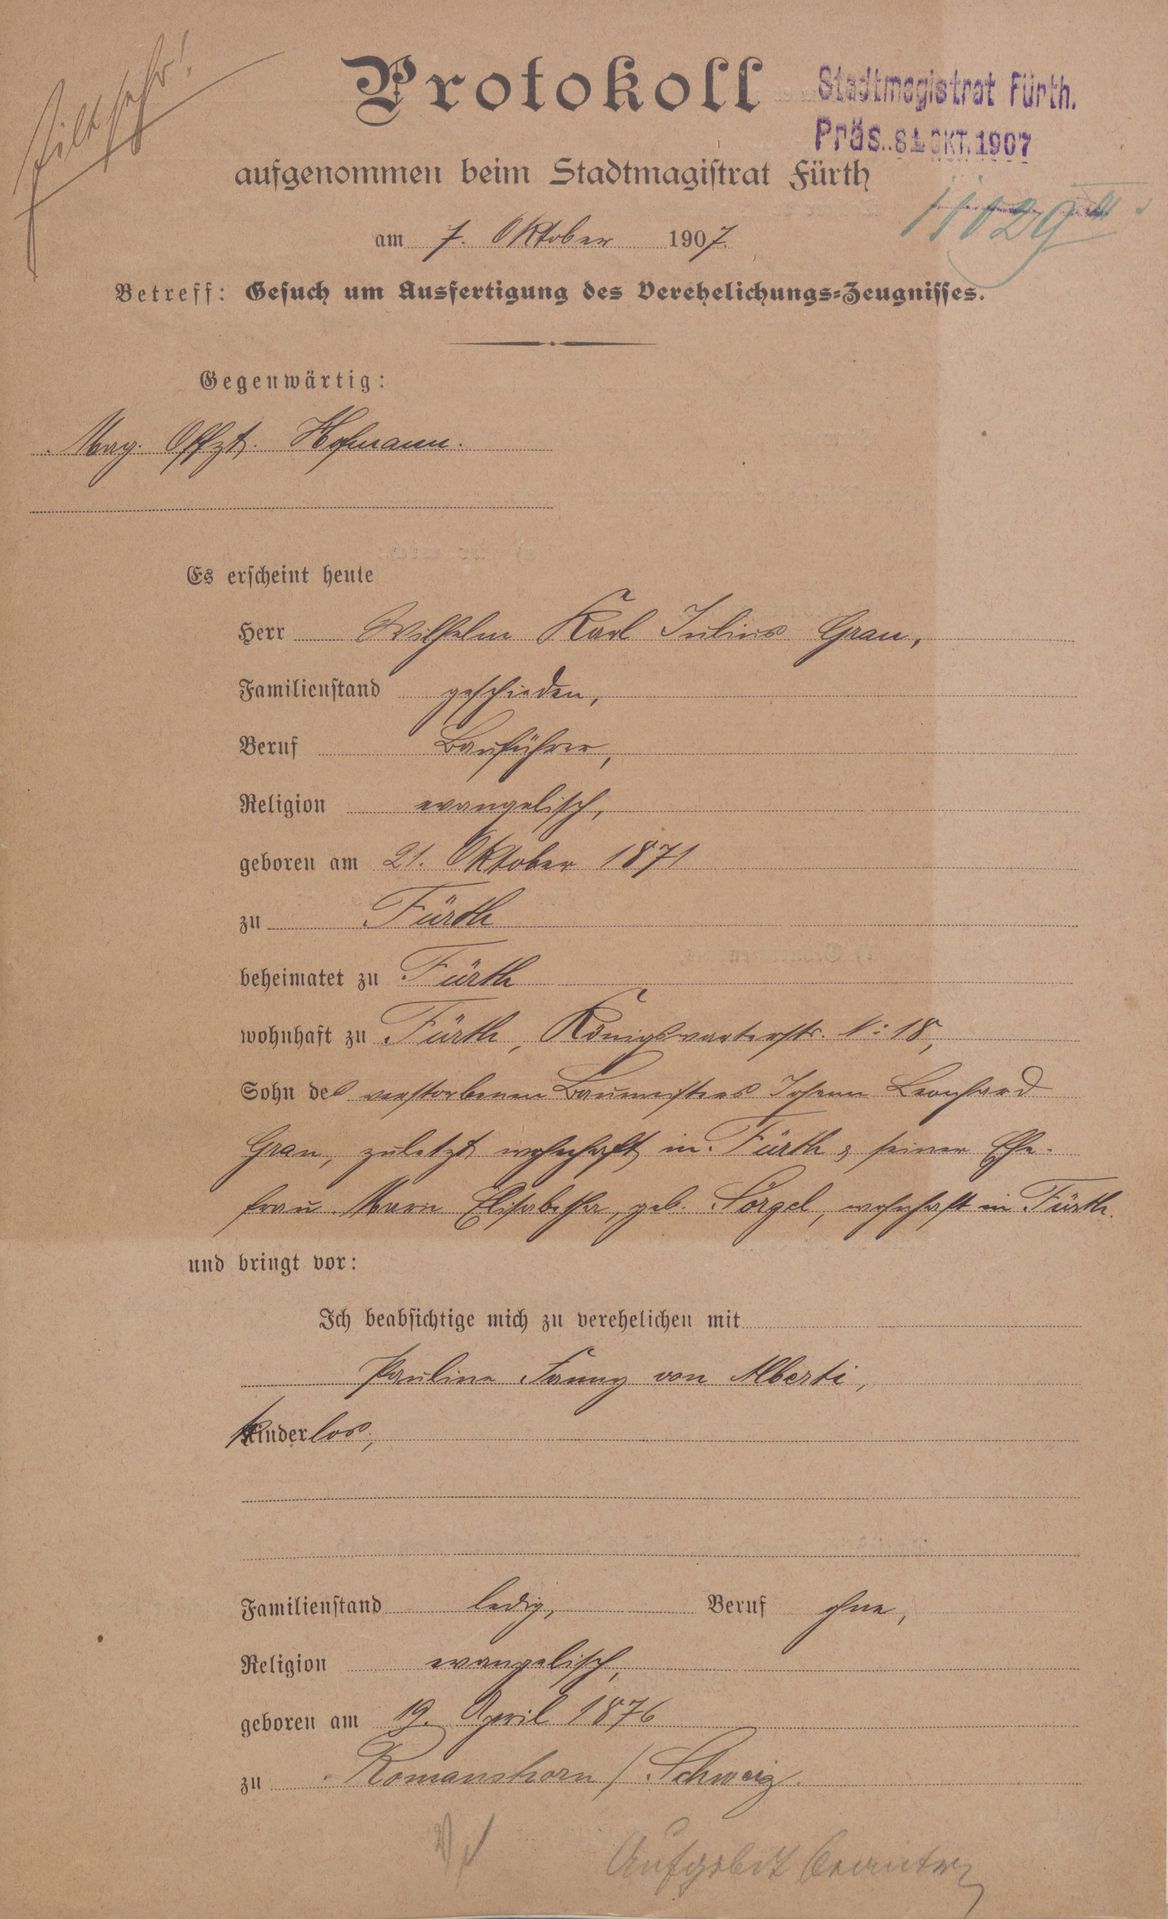 Eilt sehr!
Protokoll
Stadtmagistrat Fürth.
Präs. 31. OKT. 1907
aufgenommen beim Stadtmagistrat Fürth
11029
am 7. Oktober 1907.
Betreff: Gesuch um Ausfertigung des Verehelichungs-Zeugnisses.
Gegenwärtig:
Mag. Offzt. Hofmann.
Es erscheint heute
Herr Wilhelm Karl Julius Gran,
Familienstand geschieden,
Beruf Bauführer,
Religion evangelisch,
geboren am 21. Oktober 1871
zu Fürth
beheimatet zu Fürth
wohnhaft zu Fürth, Königswarterstr. N: 18,
Sohn des verstorbenen Baumeisters Johann Leonhard
Gran, zuletzt wohnhaft in Fürth & seiner Ehe-
frau Marie Elisabetha, geb. Sörgel, wohnhaft in Fürth.
und bringt vor:
Ich beabsichtige mich zu verehelichen mit
Pauline Fanny von Alberti,
kinderlos,
Familienstand ledig, Beruf ohne,
Religion evangelisch,
geboren am 19. April 1876
zu Romanshorn / Schweiz.
Aufgebot